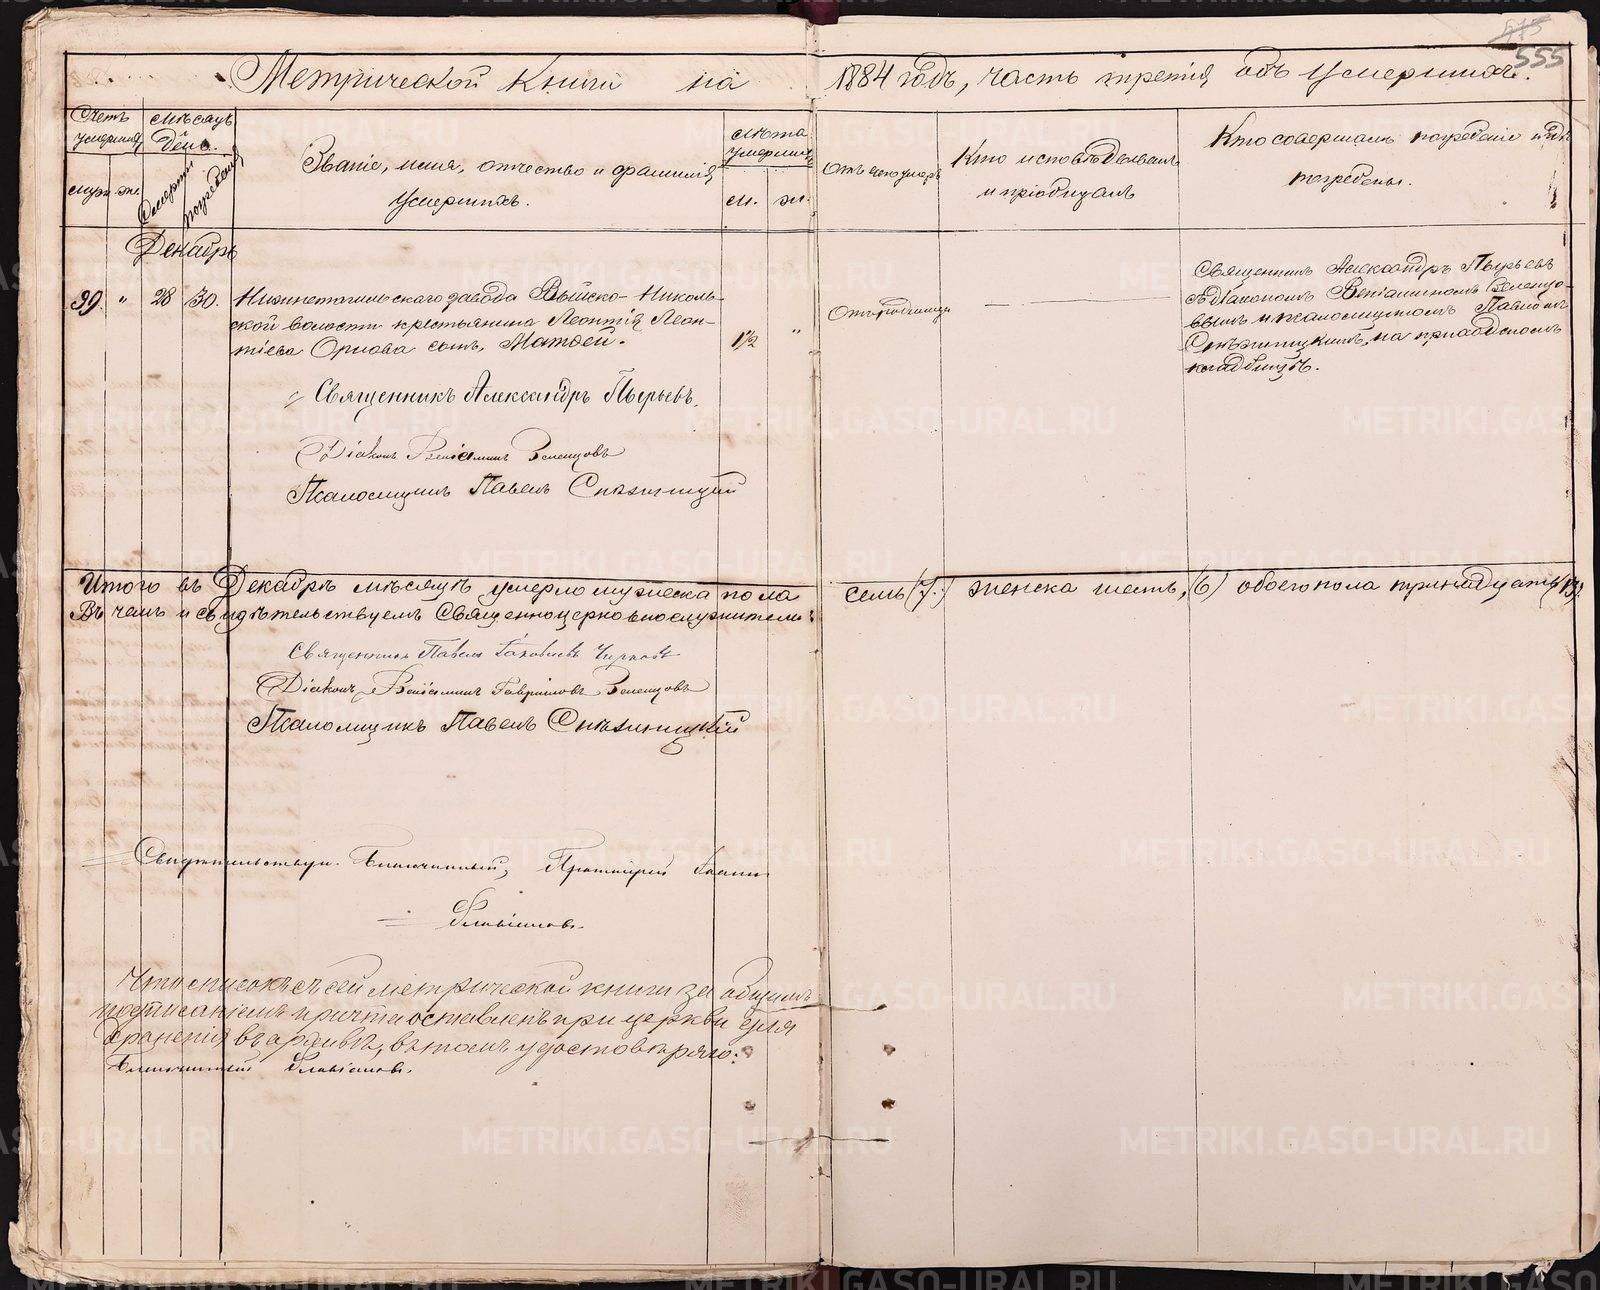 555
Метрической Книги на 1884 годъ, часть третія, объ умершихъ.
Счетъ умершихъ
Мѣсяцъ День.
Званіе, имя, отчество и фамилія умершихъ.
Лѣта умершихъ
Отъ чего умеръ
Кто исповѣдывалъ и пріобщалъ
Кто совершалъ погребеніе и гдѣ погребены.
муж. ж.
Смерти
погребенія
м. ж.
Декабрь
39. " 28 30. Нижнетагильскаго завода Выйско-Николь-
ской волости крестьянина Леонтія Леон-
тіева Орлова сынъ, Матѳей.
1½ "
Отъ родимца
Священникъ Александръ Пырьевъ
съ Діакономъ Веніаминомъ Зеленцо-
вымъ и псаломщикомъ Павломъ
Снѣжницкимъ, на приходскомъ
кладбищѣ.
Священникъ Александръ Пырьевъ.
Діаконъ Веніаминъ Зеленцовъ
Псаломщикъ Павелъ Снѣжницкій
Итого въ Декабрѣ мѣсяцѣ умерло мужеска пола семь (7.) женска шесть, (6) обоего пола тринадцать (13).
Въ чемъ и свидѣтельствуемъ Священноцерковнослужители:
Священникъ Павелъ Іаковлевъ Чирковъ
Діаконъ Веніаминъ Гавриловъ Зеленцовъ
Псаломщикъ Павелъ Снѣжницкій
Свидѣтельствую. Благочинный, Протоіерей Іоаннъ
Флавіановъ.
Что списокъ съ сей метрической книги за общимъ
подписаніемъ причта оставленъ при церкви для
храненія въ архивѣ, въ томъ удостовѣряю:
Благочинный Флавіановъ.
METRIKI.GASO-URAL.RU